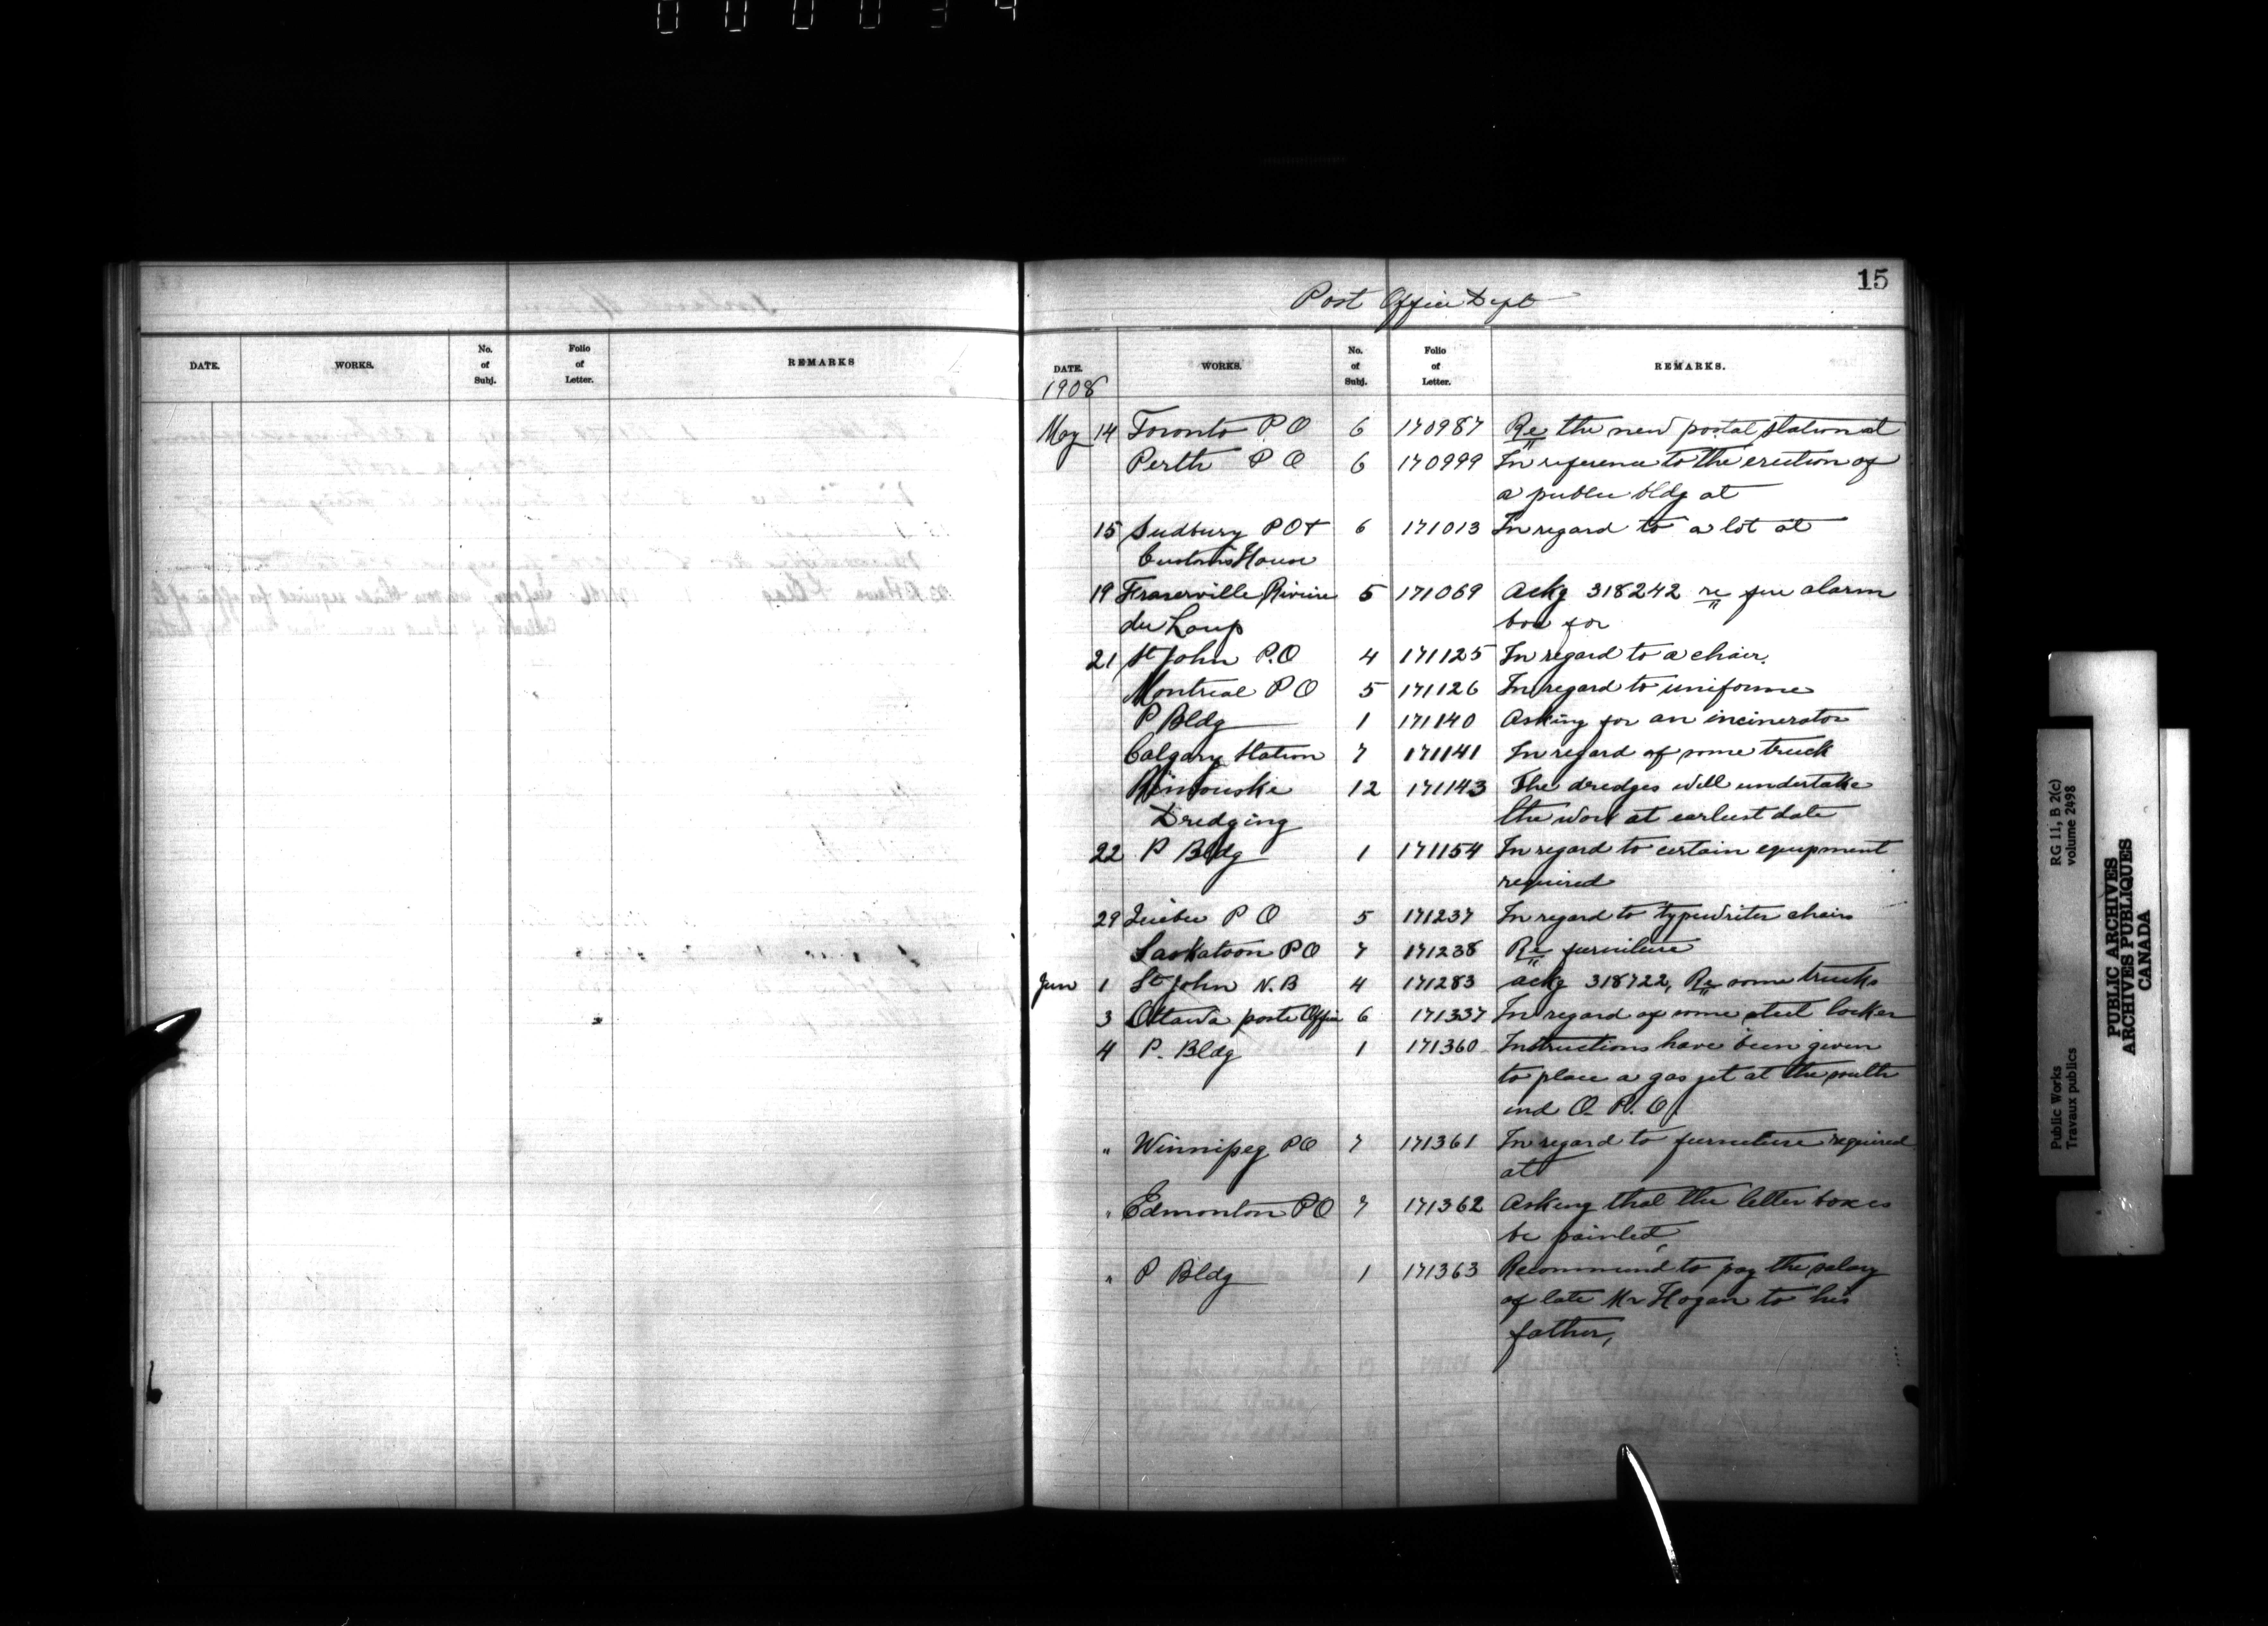 000034
15
Post Office Dept
DATE. WORKS. No. of Subj. Folio of Letter. REMARKS
DATE. WORKS. No. of Subj. Folio of Letter. REMARKS.
1908
May 14 Toronto P.O 6 170987 Re the new postal station at
Perth P O 6 170999 In reference to the erection of
a public bldg at
15 Sudbury P O + 6 171013 In regard to a lot at
Customs House
19 Fraserville Riviere 5 171069 Ackg 318242 re fire alarm
du Loup box for
21 St John P.O 4 171125 In regard to a chair.
Montreal P O 5 171126 In regard to uniforme
P Bldg 1 171140 Asking for an incinerator
Calgary Station 7 171141 In regard of some truck
Rimouski 12 171143 The dredges will undertake
Dredging the work at earliest date
22 P Bldg 1 171154 In regard to certain equipment
required
29 Quebec P O 5 171237 In regard to typewriter chairs
Saskatoon P O 7 171238 Re furniture
Jun 1 St John N.B 4 171283 ackg 318722, Re some trucks
3 Ottawa poste Office 6 171337 In regard of some steel locker
4 P. Bldg 1 171360 Instructions have been given
to place a gas jet at the south
end O. P. O.
" Winnipeg PO 7 171361 In regard to furniture required
at
" Edmonton PO 7 171362 Asking that the letter boxes
be painted
" P Bldg 1 171363 Recommend to pay the salary
of late Mr Hogan to his
father,
Public Works RG 11, B 2(c)
Travaux publics volume 2498
PUBLIC ARCHIVES
ARCHIVES PUBLIQUES
CANADA